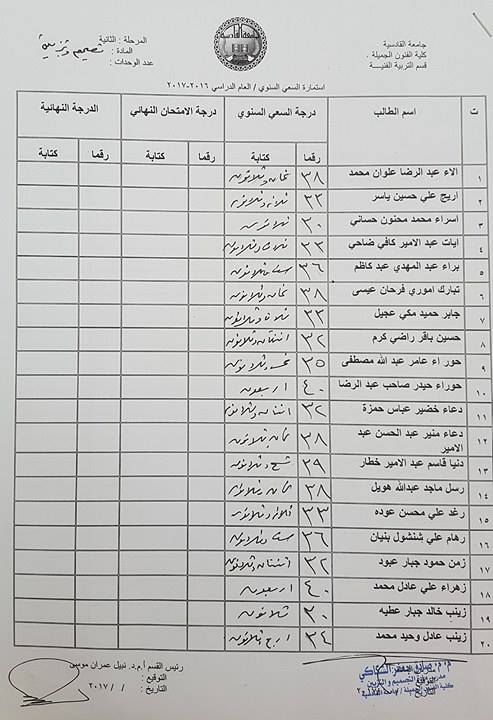 جامعة القادسية
كلية الفنون الجميلة .
قسم التربية الفنية
المرحلة : الثانية
المادة : تصميم وتزيين
عدد الوحدات :
استمارة السعي السنوي / العام الدراسي ٢٠١٦-٢٠١٧
ت اسم الطالب درجة السعي السنوي درجة الامتحان النهائي الدرجة النهائية
رقما كتابة رقما كتابة رقما كتابة
١ الاء عبد الرضا علوان محمد ٣٨ ثمان وثلاثون
٢ اريج علي حسين ياسر ٣٣ ثلاثة وثلاثون
٣ اسراء محمد محنون حساني ٣٠ ثلاثون
٤ ايات عبد الامير كافي ضاحي ٣٣ ثلاث وثلاثون
٥ براء عبد المهدي عبد كاظم ٣٦ ست وثلاثون
٦ تبارك اموري فرحان عيسى ٣٨ ثمان وثلاثون
٧ جابر حميد مكي عجيل ٣٣ ثلاث وثلاثون
٨ حسين باقر راضي كرم ٣٢ اثنتان وثلاثون
٩ حوراء عامر عبد الله مصطفى ٣٥ خمس وثلاثون
١٠ حوراء حيدر صاحب عبد الرضا ٤٠ اربعون
١١ دعاء خضير عباس حمزة ٣٢ اثنتان وثلاثون
١٢ دعاء منير عبد الحسن عبد الامير ٣٨ ثمان وثلاثون
١٣ دنيا قاسم عبد الامير خطار ٣٩ تسع وثلاثون
١٤ رسل ماجد عبدالله هويل ٣٨ ثمان وثلاثون
١٥ رغد علي محسن عوده ٣٣ ثلاث وثلاثون
١٦ رهام علي شنشول بنيان ٣٦ ست وثلاثون
١٧ زمن حمود جبار عبود ٣٢ اثنتان وثلاثون
١٨ زهراء علي عادل محمد ٤٠ اربعون
١٩ زينب خالد جبار عطيه ٣٠ ثلاثون
٢٠ زينب عادل وحيد محمد ٣٤ اربع وثلاثون
رئيس القسم أ.م.د. نبيل عمران موسى
التوقيع :
التاريخ : / / ٢٠١٧
التوقيع :
التاريخ :